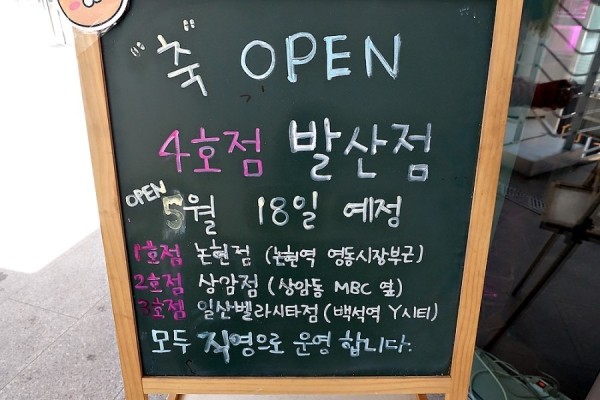 "축" OPEN
4호점 발산점
OPEN 5월 18일 예정
1호점 논현점 (논현역 영동시장부근)
2호점 상암점 (상암동 MBC 옆)
3호점 일산벨라시타점 (백석역 Y시티)
모두 직영으로 운영 합니다.